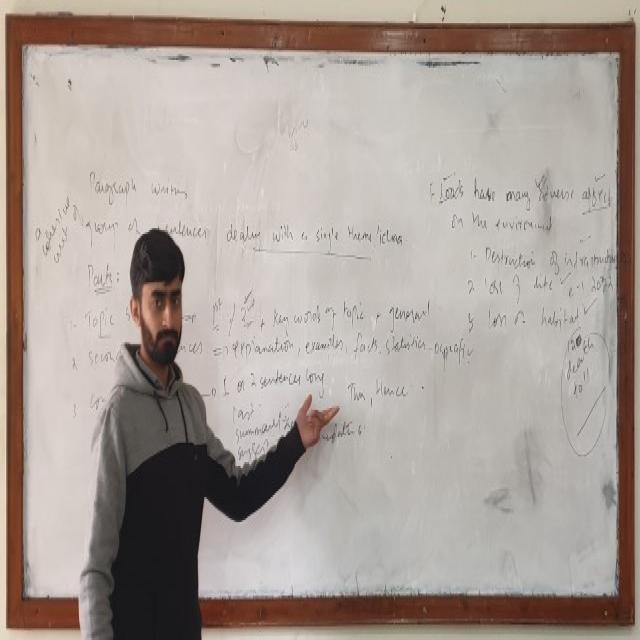 Paragraph writing
a coherent unit of
group of sentences dealing with a single theme/idea
Parts:
1- Topic S => 1st / 2nd + key words of topic + general
2 secon ces => explanation, examples, facts, statistics - specific
3 con 1 or 2 sentences long
last Thus, Hence .
summarize
sugges
Floods have many adverse effects
on the environment
1- Destruction of infrastructure
2 loss of life
3 loss of habitat
death
toll